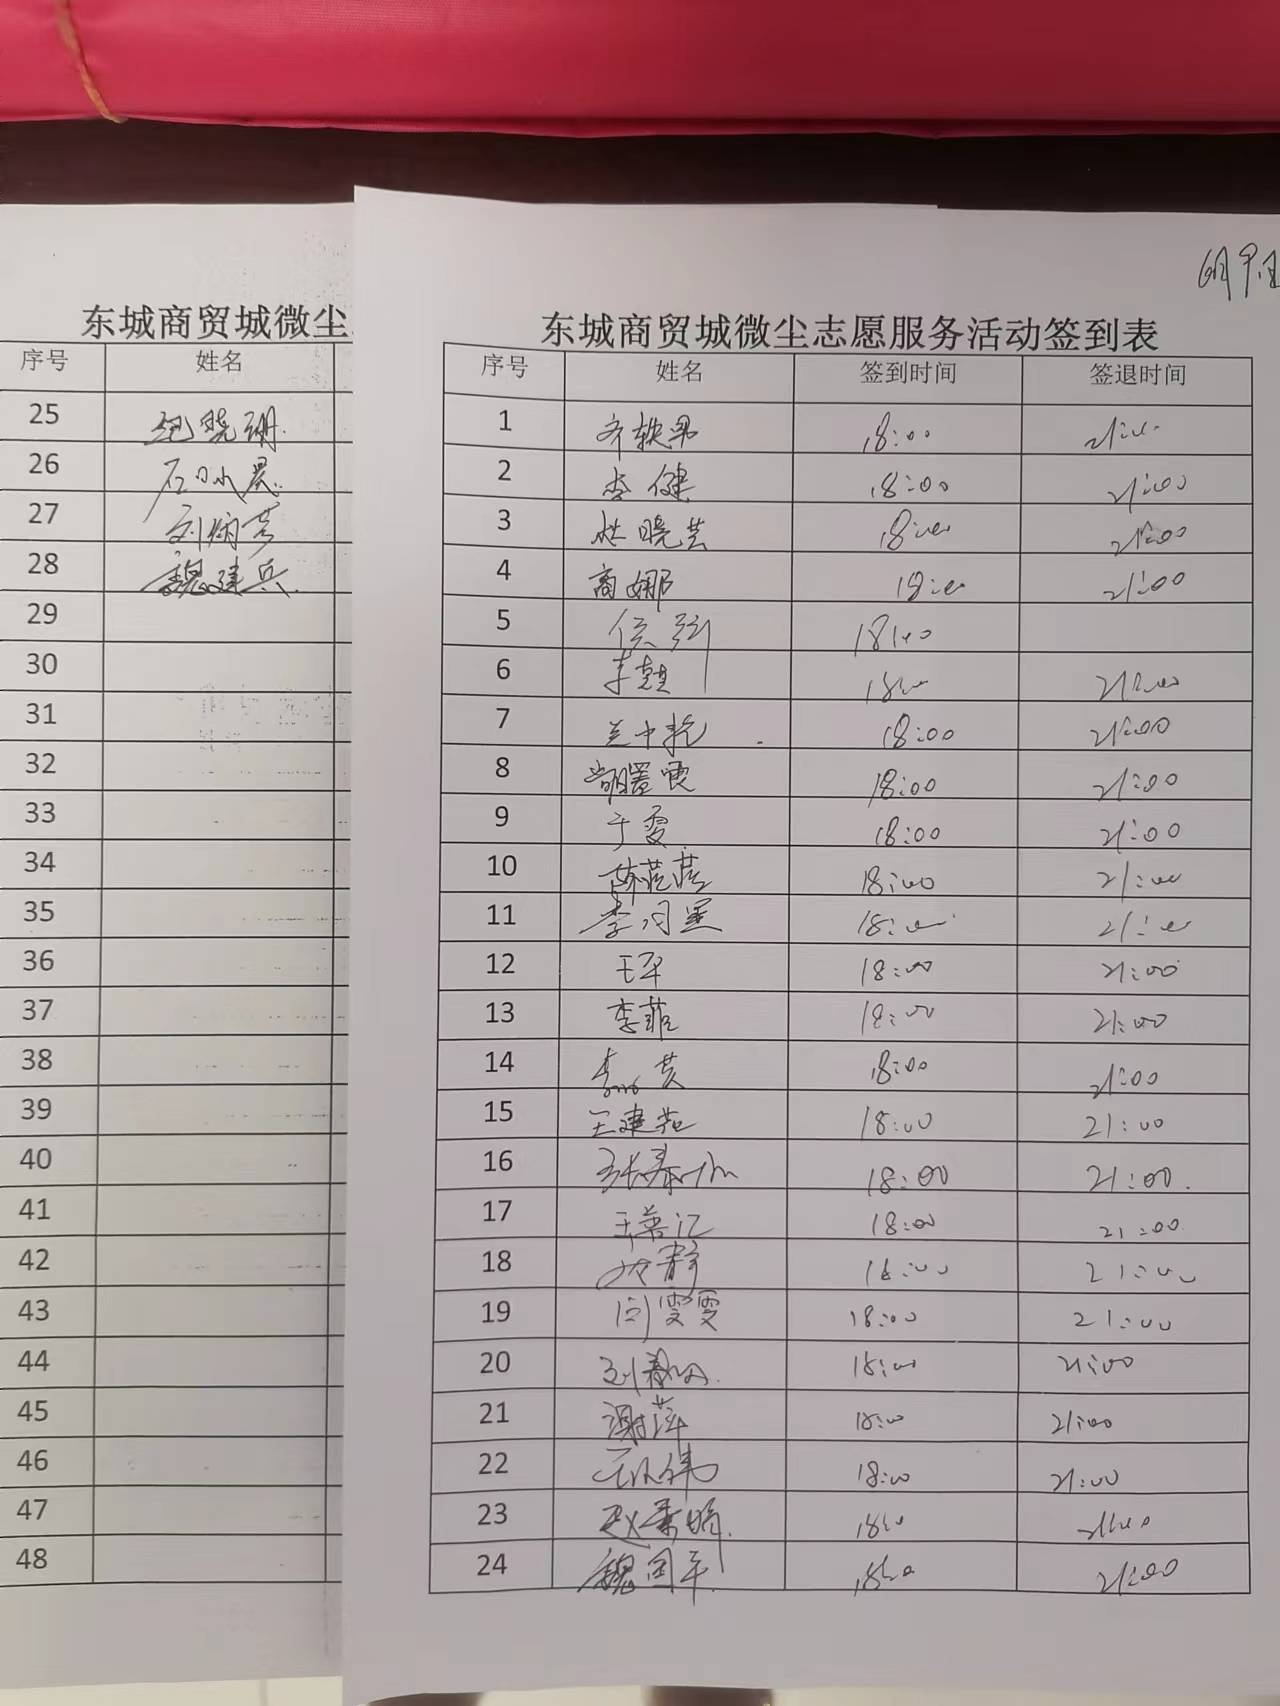 东城商贸城微尘
序号 姓名
25
26 石冰晨
27 刘炳芳
28 魏建兵
29
30
31
32
33
34
35
36
37
38
39
40
41
42
43
44
45
46
47
48
东城商贸城微尘志愿服务活动签到表
序号 姓名 签到时间 签退时间
1 齐轶男 18:00 21:00
2 李健 18:00 21:00
3 杜晓芸 18:00 21:00
4 商娜 18:00 21:00
5 18:00
6 18:00 21:00
7 兰中托 18:00 21:00
8 18:00 21:00
9 于雯 18:00 21:00
10 陈莊莊 18:00 21:00
11 李月星 18:00 21:00
12 王平 18:00 21:00
13 李菲 18:00 21:00
14 18:00 21:00
15 王建茹 18:00 21:00
16 18:00 21:00
17 18:00 21:00
18 静 18:00 21:00
19 闫雯雯 18:00 21:00
20 18:00 21:00
21 谢萍 18:00 21:00
22 18:00 21:00
23 18:00 21:00
24 魏国平 18:00 21:00